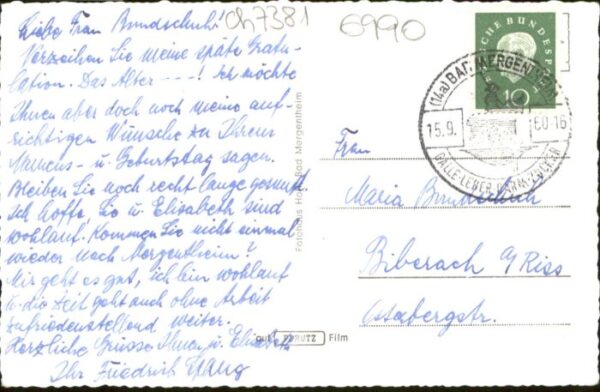 ch7381
6990
Liebe Frau Bundschuh!
Verzeihen Sie meine späte Gratu-
lation. Das Alter---! Ich möchte
Ihnen aber doch noch meine auf-
richtigen Wünsche zu Ihrem
Namens- u. Geburtstag sagen.
Bleiben Sie noch recht lange gesund.
Ich hoffe, Sie u. Elisabeth sind
wohlauf. Kommen Sie nicht einmal
wieder nach Mergentheim?
Mir geht es gut, ich bin wohlauf
u. die Zeit geht auch ohne Arbeit
zufriedenstellend weiter.
Herzliche Grüsse Ihnen u. Elisabeth
Ihr Friedrich
Fotohaus Bad Mergentheim
auf PERUTZ Film
DEUTSCHE BUNDESPOST
10
(14a) BAD MERGENTHEIM
15.9. 60-16
GALLE-LEBER-DARM-ZUCKER
Frau
Maria Bundschuh
Biberach a/Riss